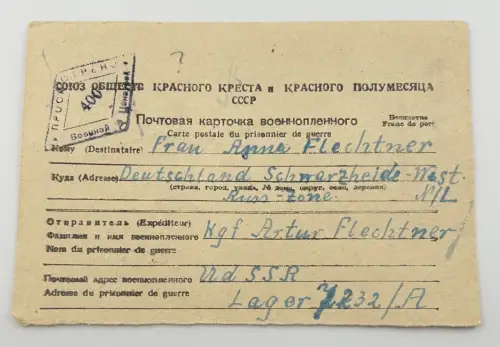 ?
СОЮЗ ОБЩЕСТВ КРАСНОГО КРЕСТА и КРАСНОГО ПОЛУМЕСЯЦА
СССР
ПРОСМОТРЕНО
400
Военной Цензурой
Почтовая карточка военнопленного
Carte postale du prisonnier de guerre
Бесплатно
Franc de port
Кому (Destinataire) Frau Anna Flechtner
Куда (Adresse) Deutschland Schwarzheide-West.
(страна, город, улица, № дома, округ, село, деревня)
Russ-Zone. N/L
Отправитель (Expéditeur)
Фамилия и имя военнопленного Kgf Artur Flechtner
Nom du prisonnier de guerre
Почтовый адрес военнопленного UdSSR
Adresse du prisonnier de guerre Lager 7232/A